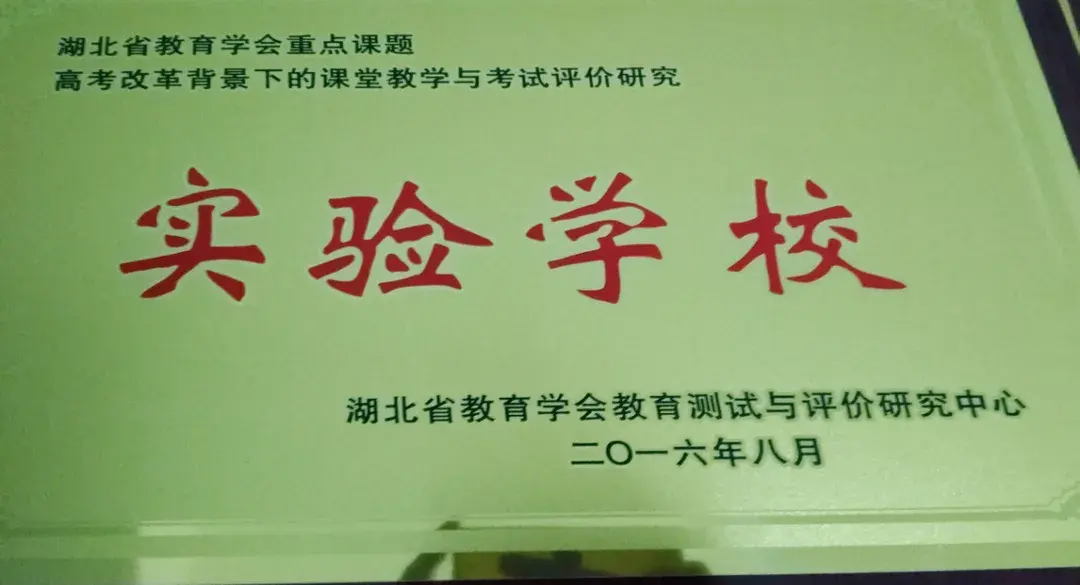 湖北省教育学会重点课题
高考改革背景下的课堂教学与考试评价研究
实验学校
湖北省教育学会教育测试与评价研究中心
二〇一六年八月